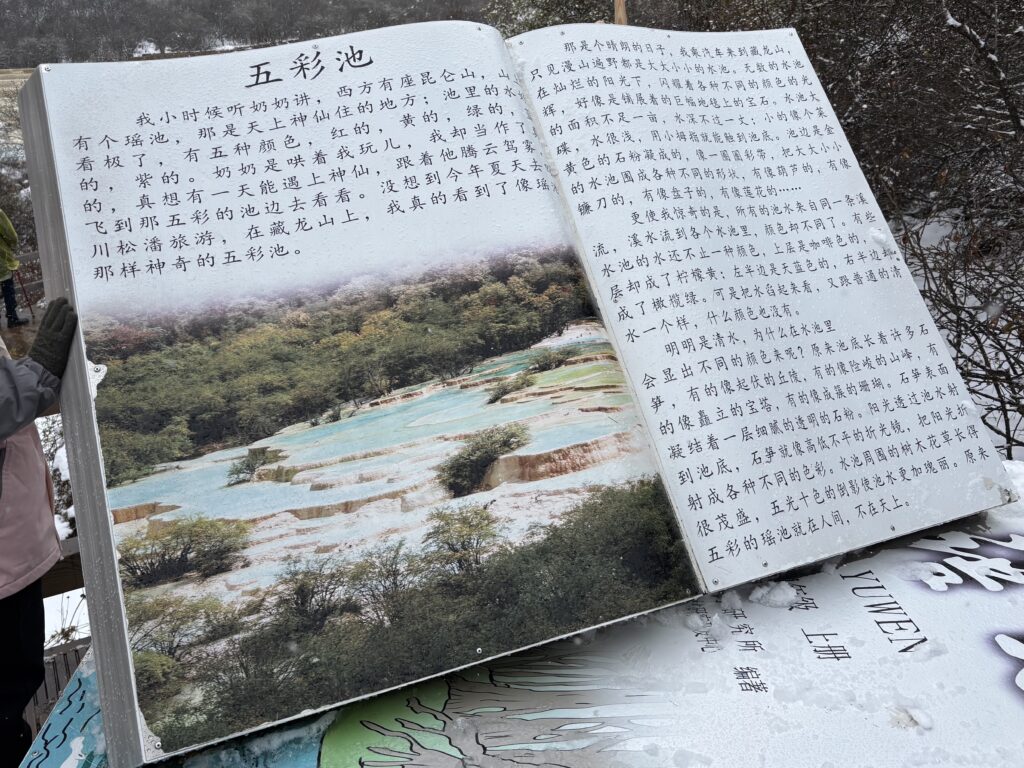 五彩池
我小时候听奶奶讲，西方有座昆仑山，山
有个瑶池，那是天上神仙住的地方；池里的水
看极了，有五种颜色，红的，黄的，绿的，
的，紫的。奶奶是哄着我玩儿，我却当作了
的，真想有一天能遇上神仙，跟着他腾云驾雾
飞到那五彩的池边去看看。没想到今年夏天去
川松潘旅游，在藏龙山上，我真的看到了像瑶
那样神奇的五彩池。
那是个晴朗的日子，我乘汽车来到藏龙山，
只见漫山遍野都是大大小小的水池。无数的水池
在灿烂的阳光下，闪耀着各种不同的颜色的光
辉，好像是铺展着的巨幅地毯上的宝石。水池大
的面积不足一亩，水深不过一丈；小的像个菜
碟，水很浅，用小拇指就能触到池底。池边是金
黄色的石粉凝成的，像一圈圈彩带，把大大小小
的水池围成各种不同的形状，有像葫芦的，有像
镰刀的，有像盘子的，有像莲花的……
更使我惊奇的是，所有的池水来自同一条溪
流，溪水流到各个水池里，颜色却不同了。有些
水池的水还不止一种颜色，上层是咖啡色的，
层却成了柠檬黄；左半边是天蓝色的，右半边却
成了橄榄绿。可是把水舀起来看，又跟普通的清
水一个样，什么颜色也没有。
明明是清水，为什么在水池里
会显出不同的颜色来呢？原来池底长着许多石
笋，有的像起伏的丘陵，有的像险峻的山峰，有
的像矗立的宝塔，有的像成簇的珊瑚。石笋表面
凝结着一层细腻的透明的石粉。阳光透过池水射
到池底，石笋就像高低不平的折光镜，把阳光折
射成各种不同的色彩。水池周围的树木花草长得
很茂盛，五光十色的倒影使池水更加瑰丽。原来
五彩的瑶池就在人间，不在天上。
YUWEN
年级 上册
研究所 编著